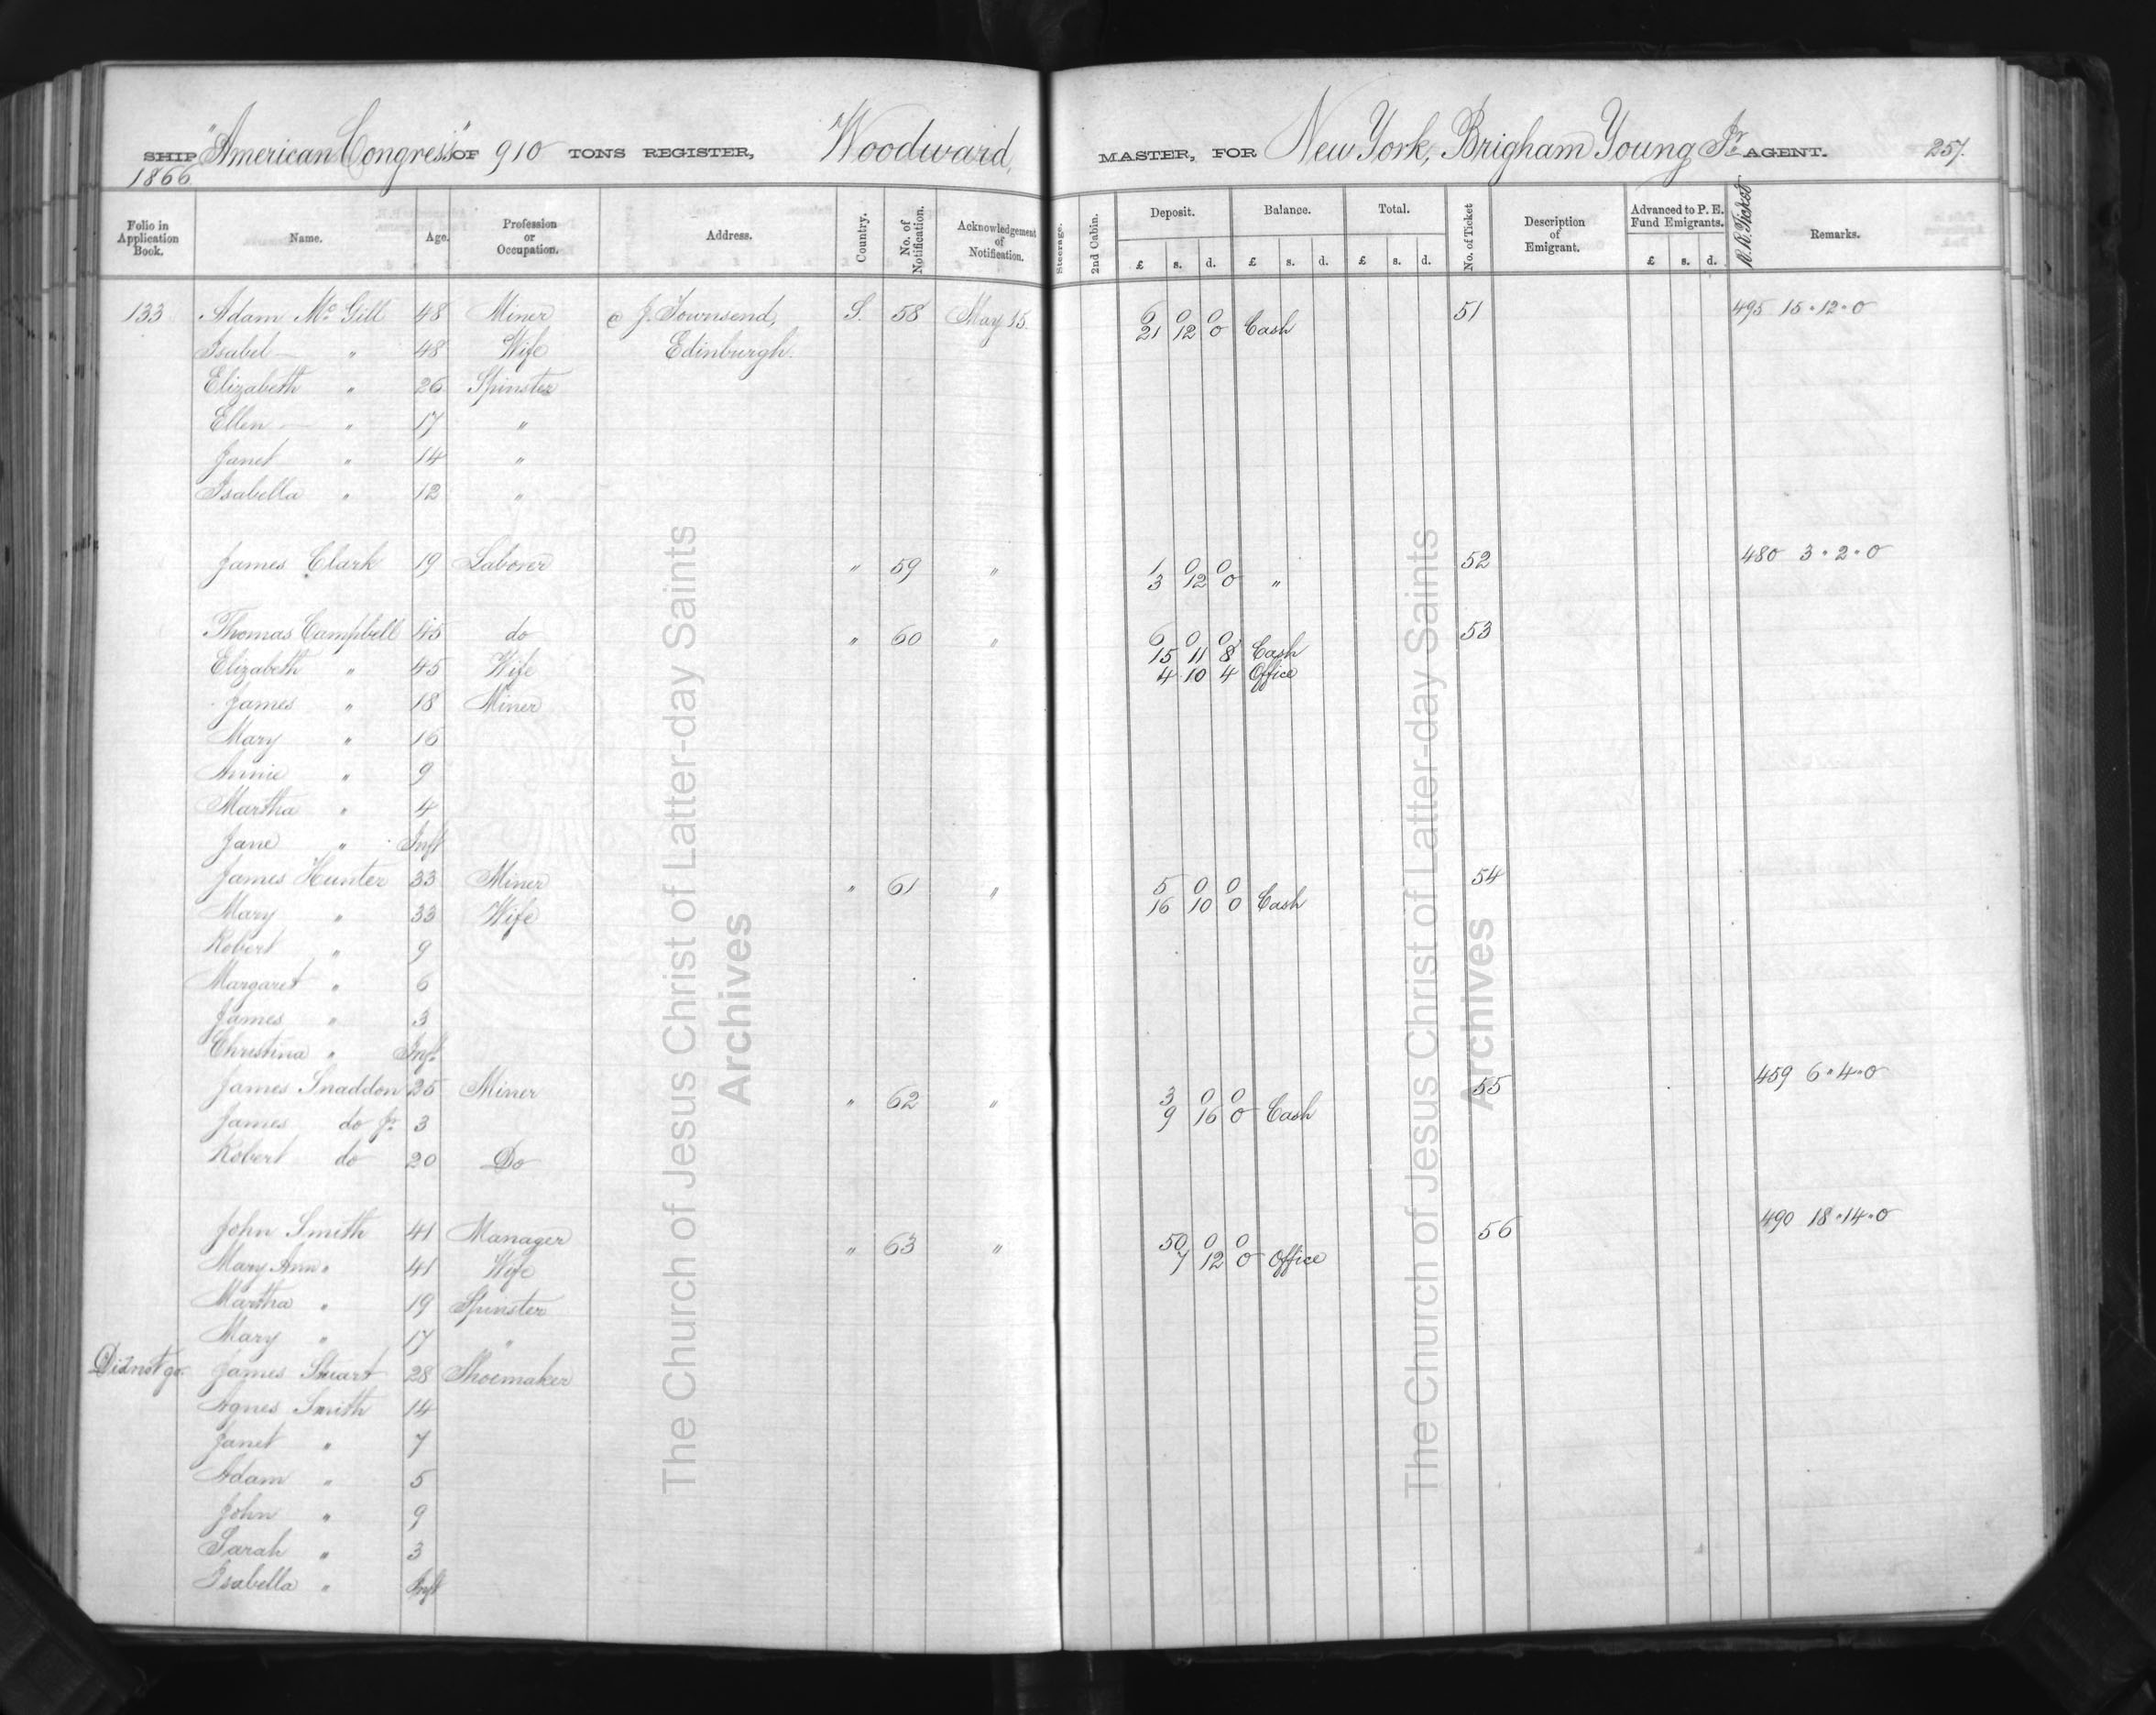 SHIP "American Congress" OF 910 TONS REGISTER, Woodward, MASTER, FOR New York, Brigham Young Jr. AGENT. 257.
1866
Folio in Application Book. Name. Age. Profession or Occupation. Address. Country. No. of Notification. Acknowledgement of Notification. Steerage. 2nd Cabin. Deposit. Balance. Total. No. of Ticket Description of Emigrant. Advanced to P. E. Fund Emigrants. R.R. Ticket Remarks.
£ s. d. £ s. d. £ s. d. £ s. d.
133 Adam Mc Gill 48 Miner c J. Townsend, S. 58 May 15. 6 0 0 51 495 15 . 12 . 0
21 12 0 Cash
Isabel — " 48 Wife Edinburgh.
Elizabeth " 26 Spinster
Ellen — " 17 "
Janet " 14 "
Isabella " 12 "
James Clark 19 Laborer " 59 " 1 0 0 52 480 3 . 2 . 0
3 12 0 "
Thomas Campbell 45 do " 60 " 6 0 0 53
15 11 8 Cash
Elizabeth " 45 Wife 4 10 4 Office
James " 18 Miner
Mary " 16
Annie " 9
Martha " 4
Jane " Inft
James Hunter 33 Miner " 61 " 5 0 0 54
Mary " 33 Wife 16 10 0 Cash
Robert " 9
Margaret " 6
James " 3
Christina " Inft
James Snaddon 25 Miner " 62 " 3 0 0 55 459 6 . 4 . 0
James do Jr. 3 9 16 0 Cash
Robert do 20 Do
John Smith 41 Manager " 63 " 50 0 0 56 490 18 . 14 . 0
Mary Ann " 41 Wife 7 12 0 Office
Martha " 19 Spinster
Mary " 17 "
Did not go. James Stuart 28 Shoemaker
Agnes Smith 14
Janet " 7
Adam " 5
John " 9
Sarah " 3
Isabella " Inft
The Church of Jesus Christ of Latter-day Saints
Archives
The Church of Jesus Christ of Latter-day Saints
Archives